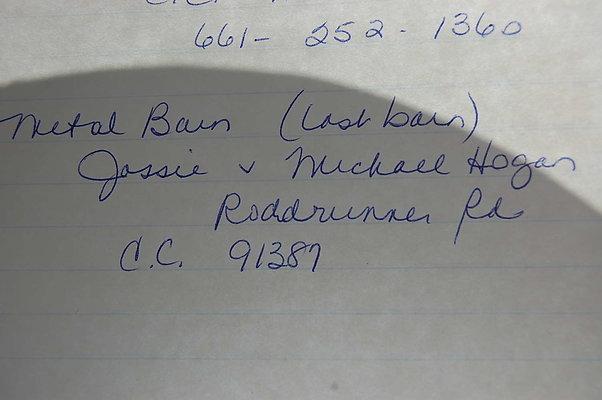 661- 252-1360
Metal Barn (Last barn)
Jossie & Michael Hogan
Roadrunner Rd
C.C. 91387